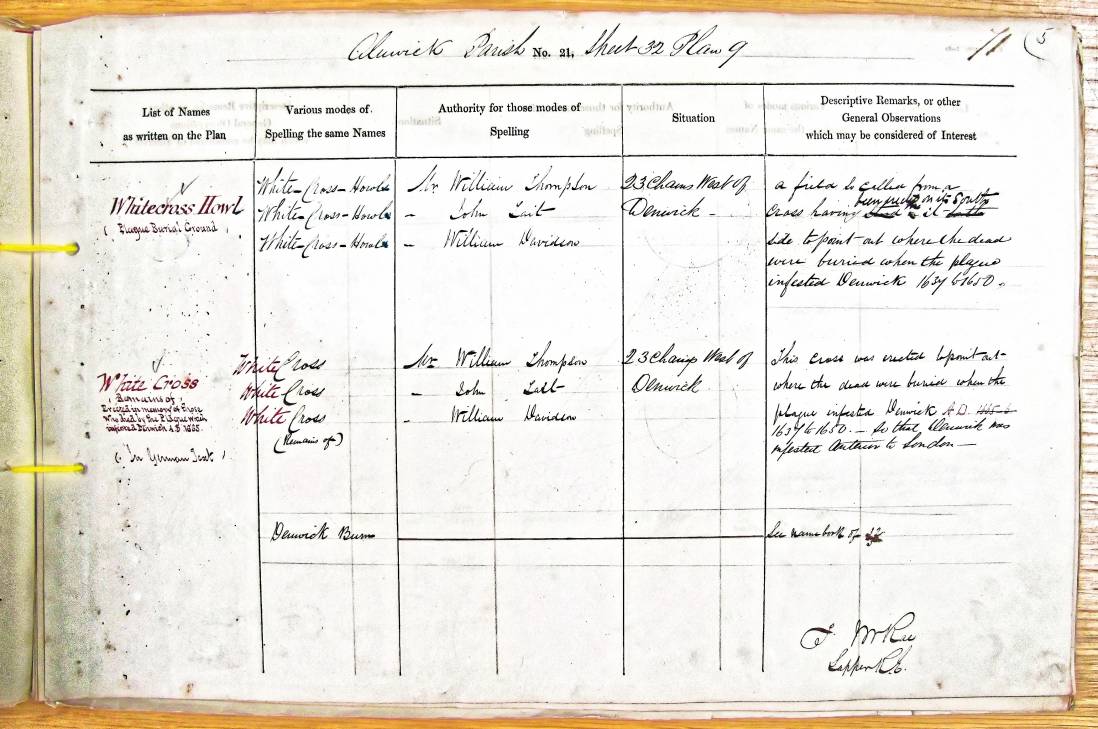 Alnwick Parish No. 21, Sheet 32 Plan 9
11 5
List of Names
as written on the Plan
Various modes of
Spelling the same Names
Authority for those modes of
Spelling
Situation
Descriptive Remarks, or other
General Observations
which may be considered of Interest
Whitecross Howl
( Plague Burial Ground )
White-Cross-Howle
White-Cross-Howle
White-Cross-Howle
Mr William Thompson
- John Tait
- William Davidson
23 Chains West of
Denwick -
a field so called from a
been erected on its South
cross having it
side to point out where the dead
were buried when the plague
infested Denwick 1637 to 1650.
White Cross
( Remains of )
Erected in memory of those
who died by the Plague which
infested Denwick A.D. 1665.
( In German Text )
White Cross
White Cross
White Cross
(Remains of)
Mr William Thompson
- John Tait
- William Davidson
23 Chains West of
Denwick
This cross was erected to point out
where the dead were buried when the
plague infested Denwick A.D.
1637 to 1650. - So that Denwick was
infested Anterior to London -
Denwick Burn
See name book of
T McRae
Sapper R.E.